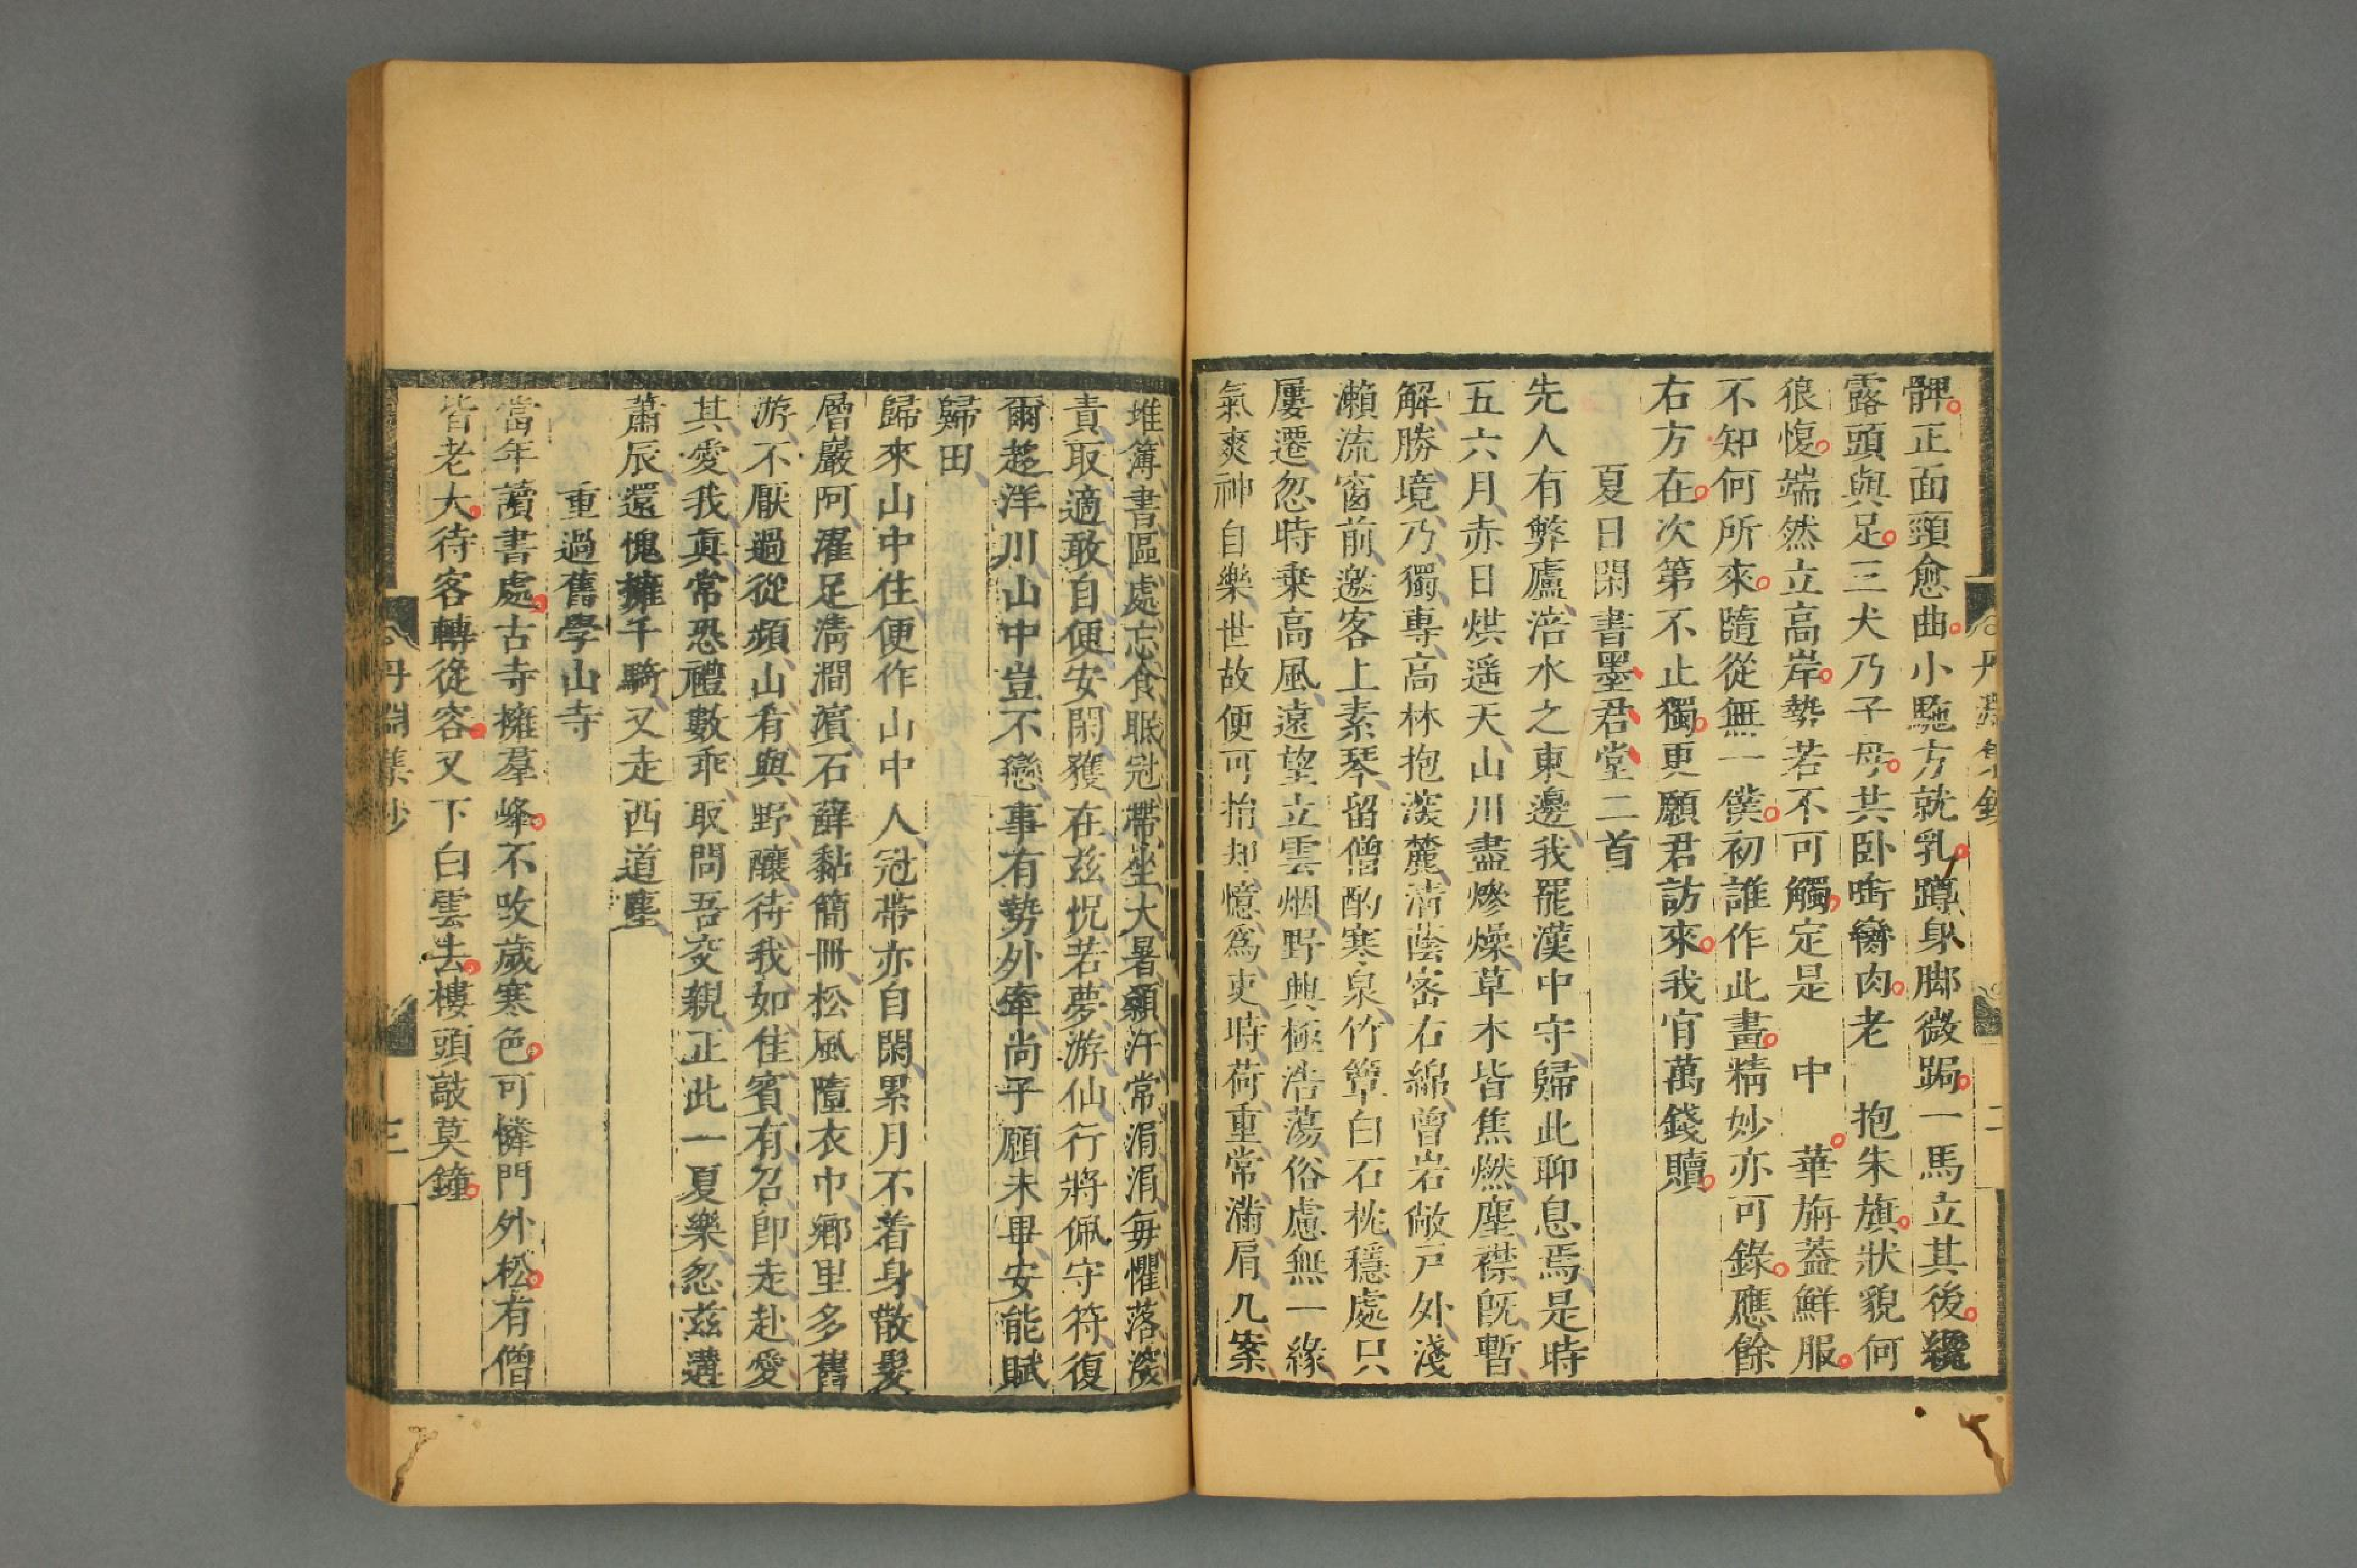 髀正面頸愈曲小駞方就乳蹲身脚微跼一馬立其後
露頭與足三犬乃子母共卧嚙臠肉老　抱朱旗狀貌何
狼愎端然立高岸勢若不可觸定是　中　華旃蓋鮮服
不知何所來隨從無一僕初誰作此畫精妙亦可錄應餘
右方在次第不止獨更願君訪來我宜萬錢贖
夏日閑書墨君堂二首
先人有弊廬涪水之東邊我罷漢中守歸此聊息焉是時
五六月赤日烘遥天山川盡熮燥草木皆焦燃塵襟旣暫
解勝境乃獨專高林抱深麓清蔭密石綿曾岩敞戸外淺
瀨流窗前邀客上素琴留僧酌寒泉竹簟白石枕穩處只
屢遷忽時乗高風遠望立雲烟野興極浩蕩俗慮無一緣
氣爽神自樂世故便可捐却憶爲吏時荷重常滿肩几案
堆簿書區處忘食眠冠帶坐大暑顙汗常涓涓每懼落深
責取適敢自便安閑獲在兹怳若夢游仙行將佩守符復
爾趍洋川山中豈不戀事有勢外牽尚子願未畢安能賦
歸田
歸來山中住便作山中人冠帶亦自閑累月不着身散髮
層巖阿濯足清澗濵石蘚黏簡冊松風隨衣巾鄉里多舊
游不厭過從頻山肴與野釀待我如佳賓有召卽走赴愛
其愛我真常恐禮數乖取問吾交親正此一夏樂忽兹遘
蕭辰還愧擁千騎又走西道塵
重過舊學山寺
當年讀書處古寺擁羣峰不改歲寒色可憐門外松有僧
皆老大待客轉從容又下白雲去樓頭敲莫鐘
丹淵集鈔
二
丹淵集鈔
三